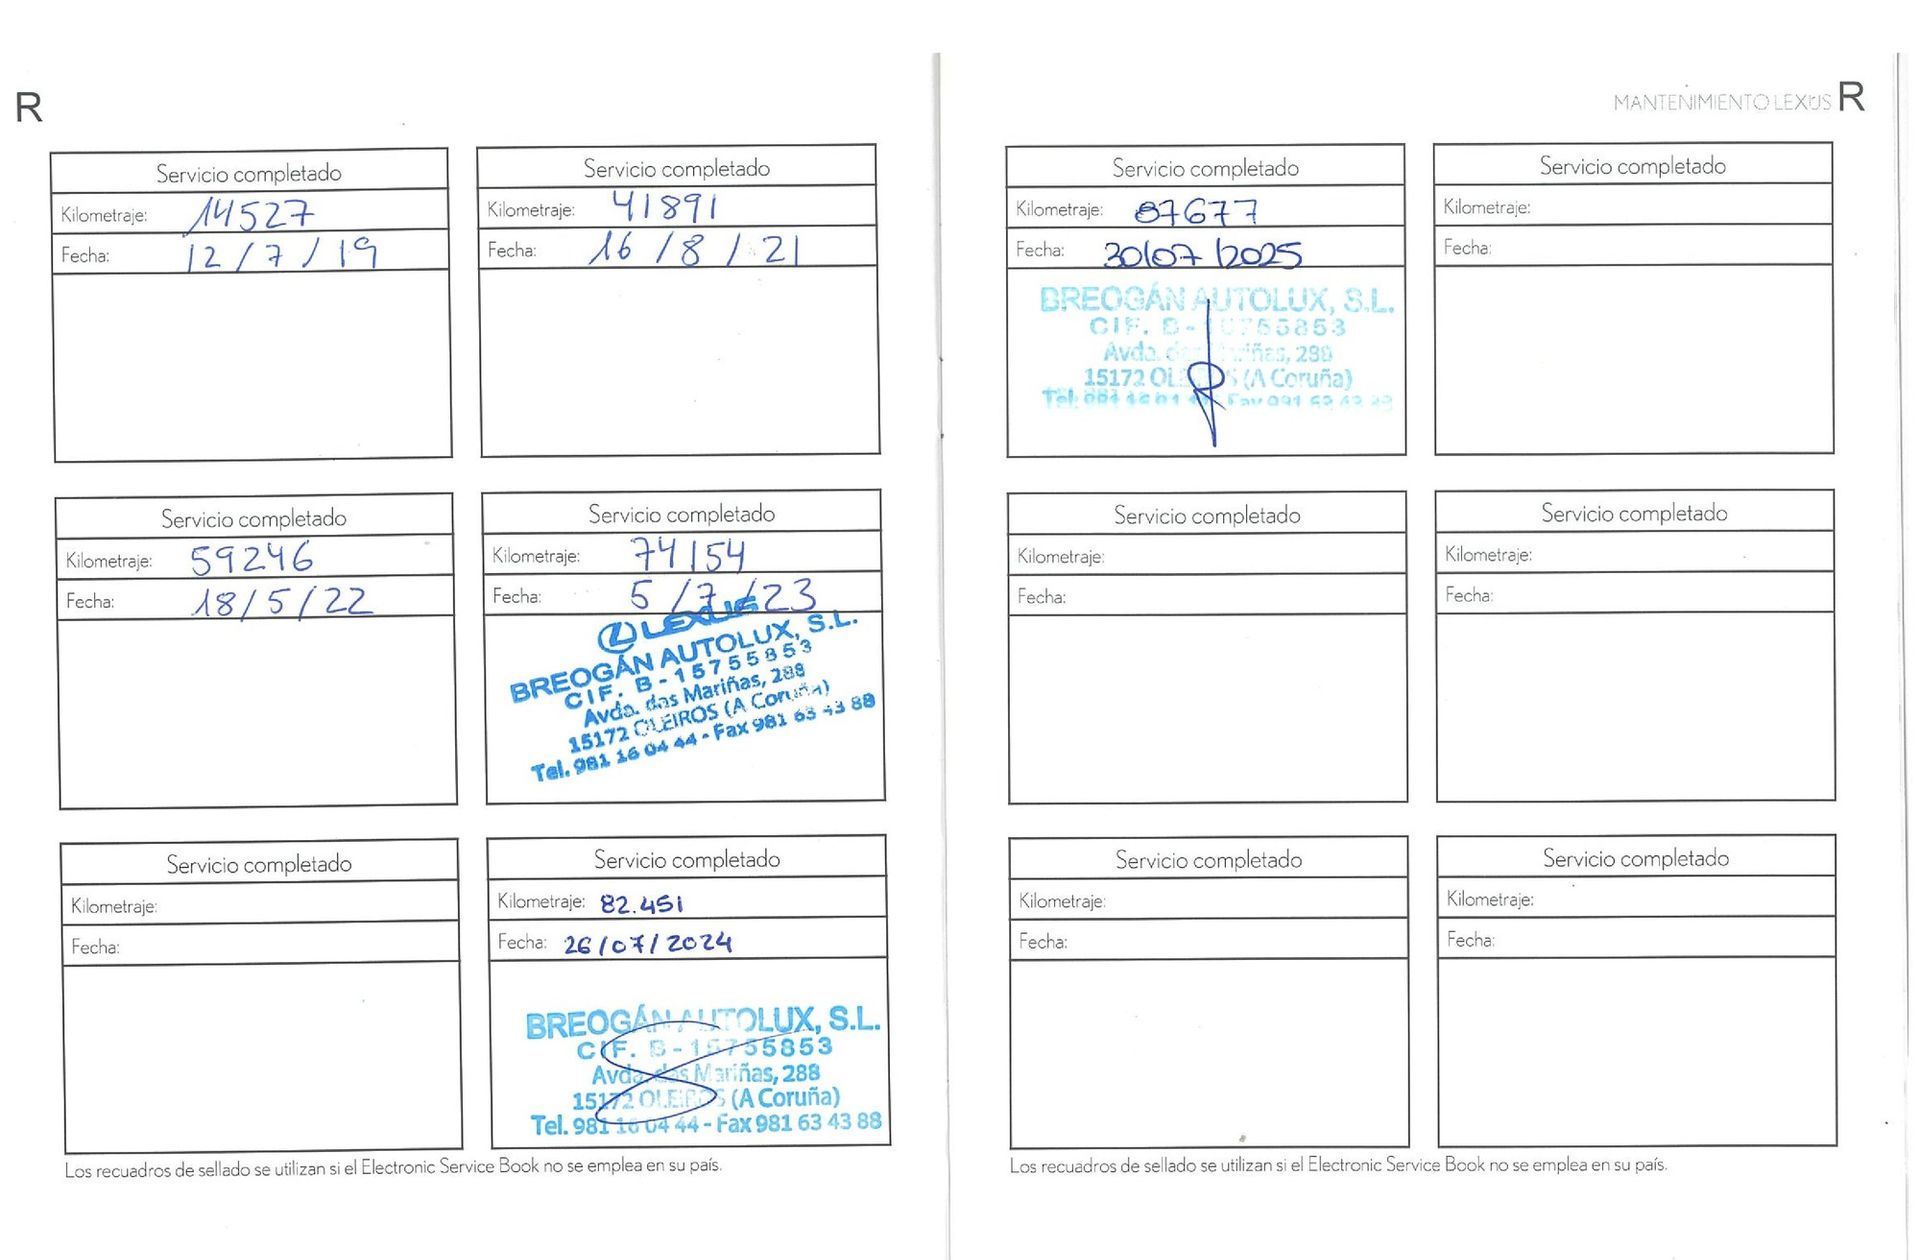 R
Servicio completado
Kilometraje: 14527
Fecha: 12/7/19
Servicio completado
Kilometraje: 41891
Fecha: 16/8/21
Servicio completado
Kilometraje: 59246
Fecha: 18/5/22
Servicio completado
Kilometraje: 74154
Fecha: 5/7/23
LEXUS
BREOGÁN AUTOLUX, S.L.
CIF. B-15755853
Avda. das Mariñas, 288
15172 OLEIROS (A Coruña)
Tel. 981 16 04 44 - Fax 981 63 43 88
Servicio completado
Kilometraje:
Fecha:
Servicio completado
Kilometraje: 82.451
Fecha: 26/07/2024
BREOGÁN AUTOLUX, S.L.
CIF. B-15755853
Avda. das Mariñas, 288
15172 OLEIROS (A Coruña)
Tel. 981 16 04 44 - Fax 981 63 43 88
Los recuadros de sellado se utilizan si el Electronic Service Book no se emplea en su país.
MANTENIMIENTO LEXUS R
Servicio completado
Kilometraje: 87677
Fecha: 30/07/2025
BREOGÁN AUTOLUX, S.L.
CIF. B-15755853
Avda. das Mariñas, 288
15172 OLEIROS (A Coruña)
Tel. 981 16 04 44 - Fax 981 63 43 88
Servicio completado
Kilometraje:
Fecha:
Servicio completado
Kilometraje:
Fecha:
Servicio completado
Kilometraje:
Fecha:
Servicio completado
Kilometraje:
Fecha:
Servicio completado
Kilometraje:
Fecha:
Los recuadros de sellado se utilizan si el Electronic Service Book no se emplea en su país.